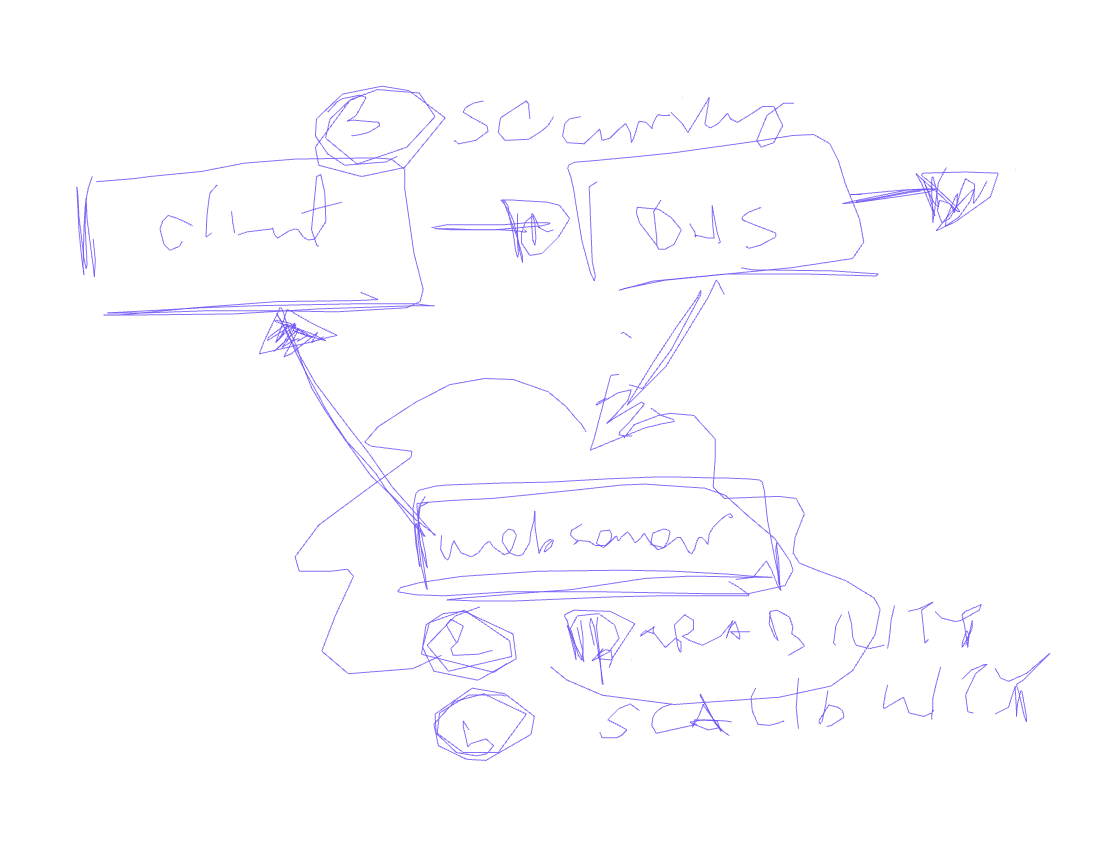 3 security
client
DNS
webserver
2 DARABILITY
SCALIBILITY